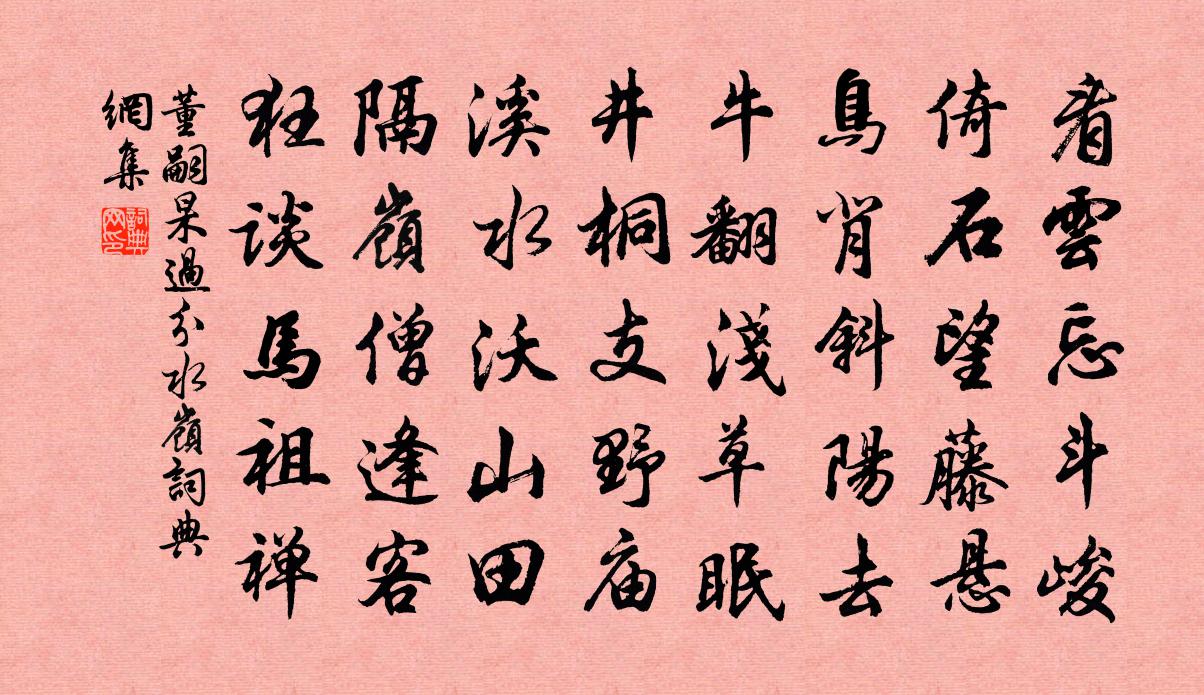 看雲忘斗峻
倚石望藤悬
鳥肖斜陽去
牛翻淺草眠
井桐支野庙
溪水沃山田
隔嶺僧逢客
狂谈馬祖禅
董嗣杲過分水嶺詞典
網集
詞典网印